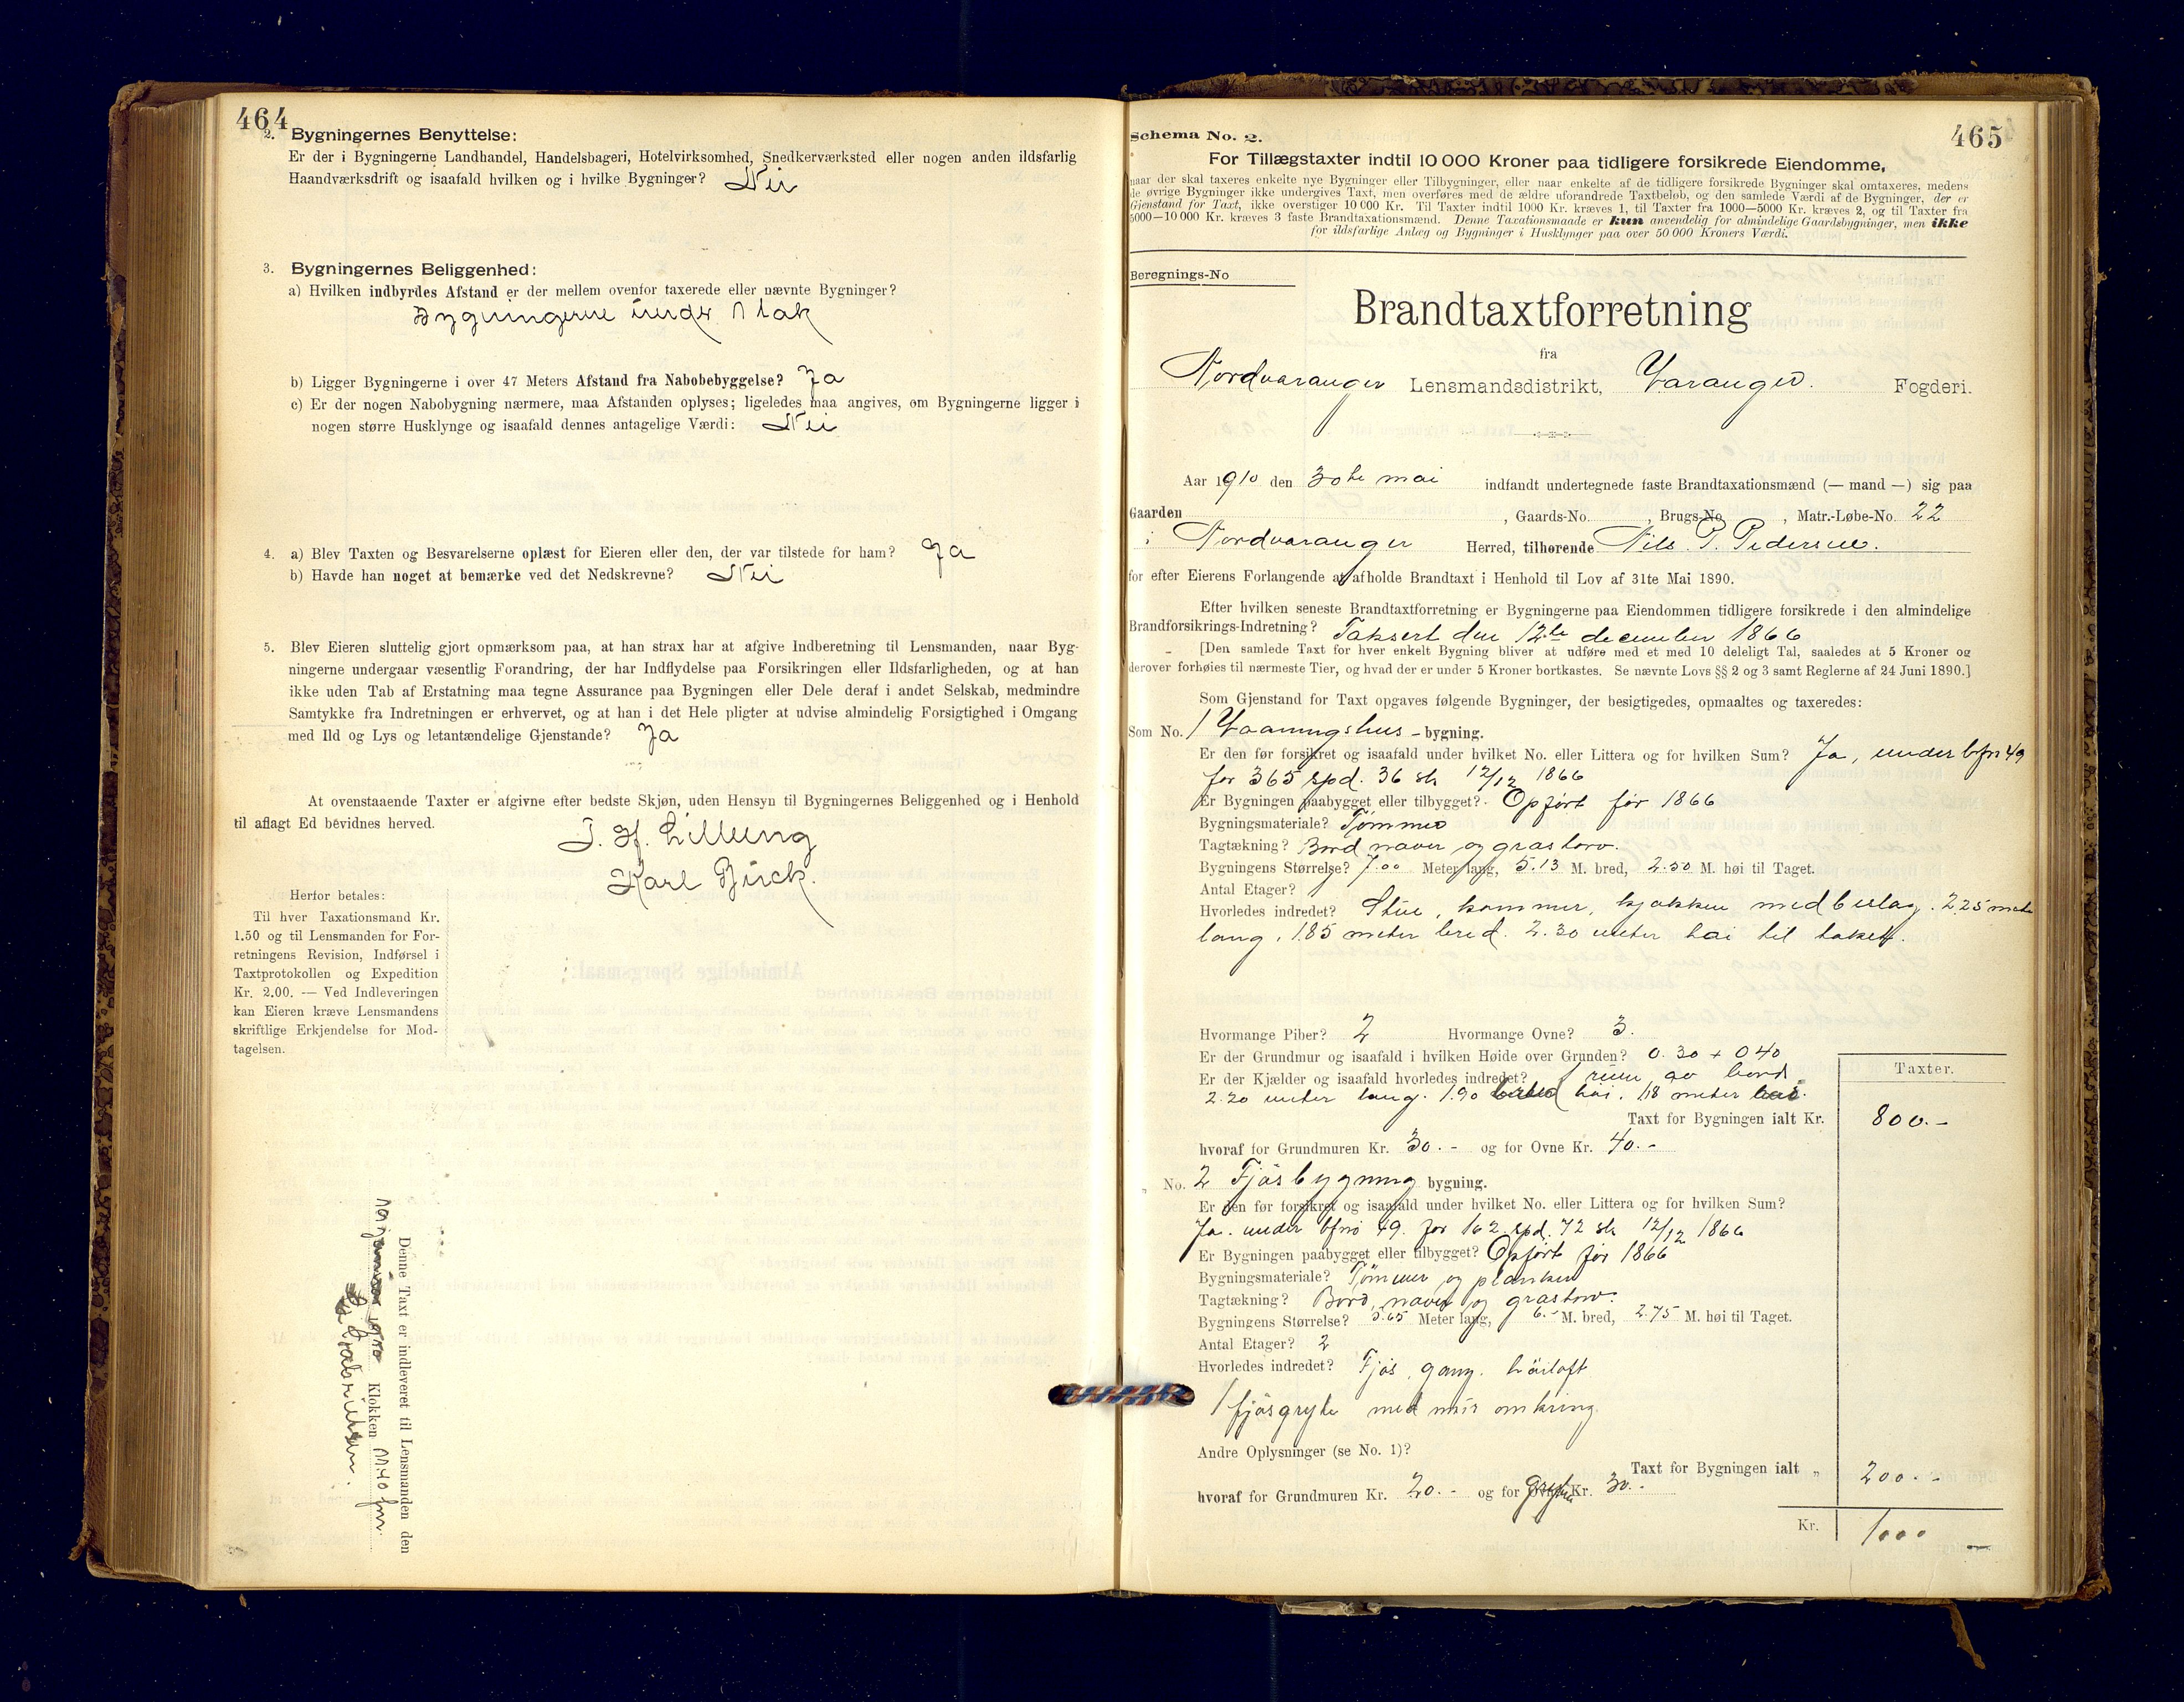 464
2. Bygningernes Benyttelse:
Er der i Bygningerne Landhandel, Handelsbageri, Hotelvirksomhed, Snedkerværksted eller nogen anden ildsfarlig
Haandværksdrift og isaafald hvilken og i hvilke Bygninger? Nei
3. Bygningernes Beliggenhed:
a) Hvilken indbyrdes Afstand er der mellem ovenfor taxerede eller nævnte Bygninger?
Bygningerne under 1 tak
b) Ligger Bygningerne i over 47 Meters Afstand fra Nabobebyggelse? Ja
c) Er der nogen Nabobygning nærmere, maa Afstanden oplyses; ligeledes maa angives, om Bygningerne ligger i
nogen større Husklynge og isaafald dennes antagelige Værdi: Nei
4. a) Blev Taxten og Besvarelserne oplæst for Eieren eller den, der var tilstede for ham? Ja
b) Havde han noget at bemærke ved det Nedskrevne? Nei
5. Blev Eieren sluttelig gjort opmærksom paa, at han strax har at afgive Indberetning til Lensmanden, naar Byg-
ningerne undergaar væsentlig Forandring, der har Indflydelse paa Forsikringen eller Ildsfarligheden, og at han
ikke uden Tab af Erstatning maa tegne Assurance paa Bygningen eller Dele deraf i andet Selskab, medmindre
Samtykke fra Indretningen er erhvervet, og at han i det Hele pligter at udvise almindelig Forsigtighed i Omgang
med Ild og Lys og letantændelige Gjenstande? Ja
At ovenstaaende Taxter er afgivne efter bedste Skjøn, uden Hensyn til Bygningernes Beliggenhed og i Henhold
til aflagt Ed bevidnes herved.
J. H. Lilleeng
Karl Birck.
Herfor betales:
Til hver Taxationsmand Kr.
1.50 og til Lensmanden for For-
retningens Revision, Indførsel i
Taxtprotokollen og Expedition
Kr. 2.00. — Ved Indleveringen
kan Eieren kræve Lensmandens
skriftlige Erkjendelse for Mod-
tagelsen.
Denne Taxt er indleveret til Lensmanden den
Klokken 11.40 fm.
465
Schema No. 2.
For Tillægstaxter indtil 10 000 Kroner paa tidligere forsikrede Eiendomme,
naar der skal taxeres enkelte nye Bygninger eller Tilbygninger, eller naar enkelte af de tidligere forsikrede Bygninger skal omtaxeres, medens
de øvrige Bygninger ikke undergives Taxt, men overføres med de ældre uforandrede Taxtbeløb, og den samlede Værdi af de Bygninger, der er
Gjenstand for Taxt, ikke overstiger 10 000 Kr. Til Taxter indtil 1000 Kr. kræves 1, til Taxter fra 1000—5000 Kr. kræves 2, og til Taxter fra
5000—10 000 Kr. kræves 3 faste Brandtaxationsmænd. Denne Taxationsmaade er kun anvendelig for almindelige Gaardsbygninger, men ikke
for ildsfarlige Anlæg og Bygninger i Husklynger paa over 50 000 Kroners Værdi.
Beregnings-No
Brandtaxtforretning
fra
Nordvaranger Lensmandsdistrikt, Varanger. Fogderi.
Aar 1910 den 30te mai indfandt undertegnede faste Brandtaxationsmænd (— mand —) sig paa
Gaarden , Gaards-No. , Brugs-No. , Matr.-Løbe-No. 22
i Nordvaranger Herred, tilhørende Nils P. Pedersen.
for efter Eierens Forlangende at afholde Brandtaxt i Henhold til Lov af 31te Mai 1890.
Efter hvilken seneste Brandtaxtforretning er Bygningerne paa Eiendommen tidligere forsikrede i den almindelige
Brandforsikrings-Indretning? Taksert den 12te december 1866
[Den samlede Taxt for hver enkelt Bygning bliver at udføre med et med 10 deleligt Tal, saaledes at 5 Kroner og
derover forhøies til nærmeste Tier, og hvad der er under 5 Kroner bortkastes. Se nævnte Lovs §§ 2 og 3 samt Reglerne af 24 Juni 1890.]
Som Gjenstand for Taxt opgaves følgende Bygninger, der besigtigedes, opmaaltes og taxeredes:
Som No. 1 Vaaningshus - bygning.
Er den før forsikret og isaafald under hvilket No. eller Littera og for hvilken Sum? Ja, under bfn 49
for 365 spd. 36 sk 12/12 1866
Er Bygningen paabygget eller tilbygget? Opført før 1866
Bygningsmateriale? Tømmer
Tagtækning? Bord naver og grastorv.
Bygningens Størrelse? 7.00 Meter lang, 5.13 M. bred, 2.50 M. høi til Taget.
Antal Etager?
Hvorledes indredet? Stue, kammer, kjøkken med beslag. 2.25 meter
lang, 1.85 meter bred. 2.30 meter høi til taket.
Hvormange Piber? 2 Hvormange Ovne? 3.
Er der Grundmur og isaafald i hvilken Høide over Grunden? 0.30 + 0.40
Er der Kjælder og isaafald hvorledes indredet? 1 rum av bord
2.20 meter lang. 1.90 høi. 1,18 meter
Taxter.
Taxt for Bygningen ialt Kr. 800.-
hvoraf for Grundmuren Kr. 30.- og for Ovne Kr. 40.-
No. 2 Fjøsbygning bygning.
Er den før forsikret og isaafald under hvilket No. eller Littera og for hvilken Sum?
Ja. under bfno 49. for 162 spd. 72 sk 12/12 1866
Er Bygningen paabygget eller tilbygget? Opført før 1866
Bygningsmateriale? Tømmer og planker
Tagtækning? Bord, naver og grastorv.
Bygningens Størrelse? 5.65 Meter lang, 6.- M. bred, 2.75 M. høi til Taget.
Antal Etager? 2
Hvorledes indredet? Fjøs, gang. høiloft
1 fjøsgryte med mur omkring.
Andre Oplysninger (se No. 1)?
Taxt for Bygningen ialt „ 200.-
hvoraf for Grundmuren Kr. 20.- og for Gryten Kr. 30.-
Kr. 1000 -